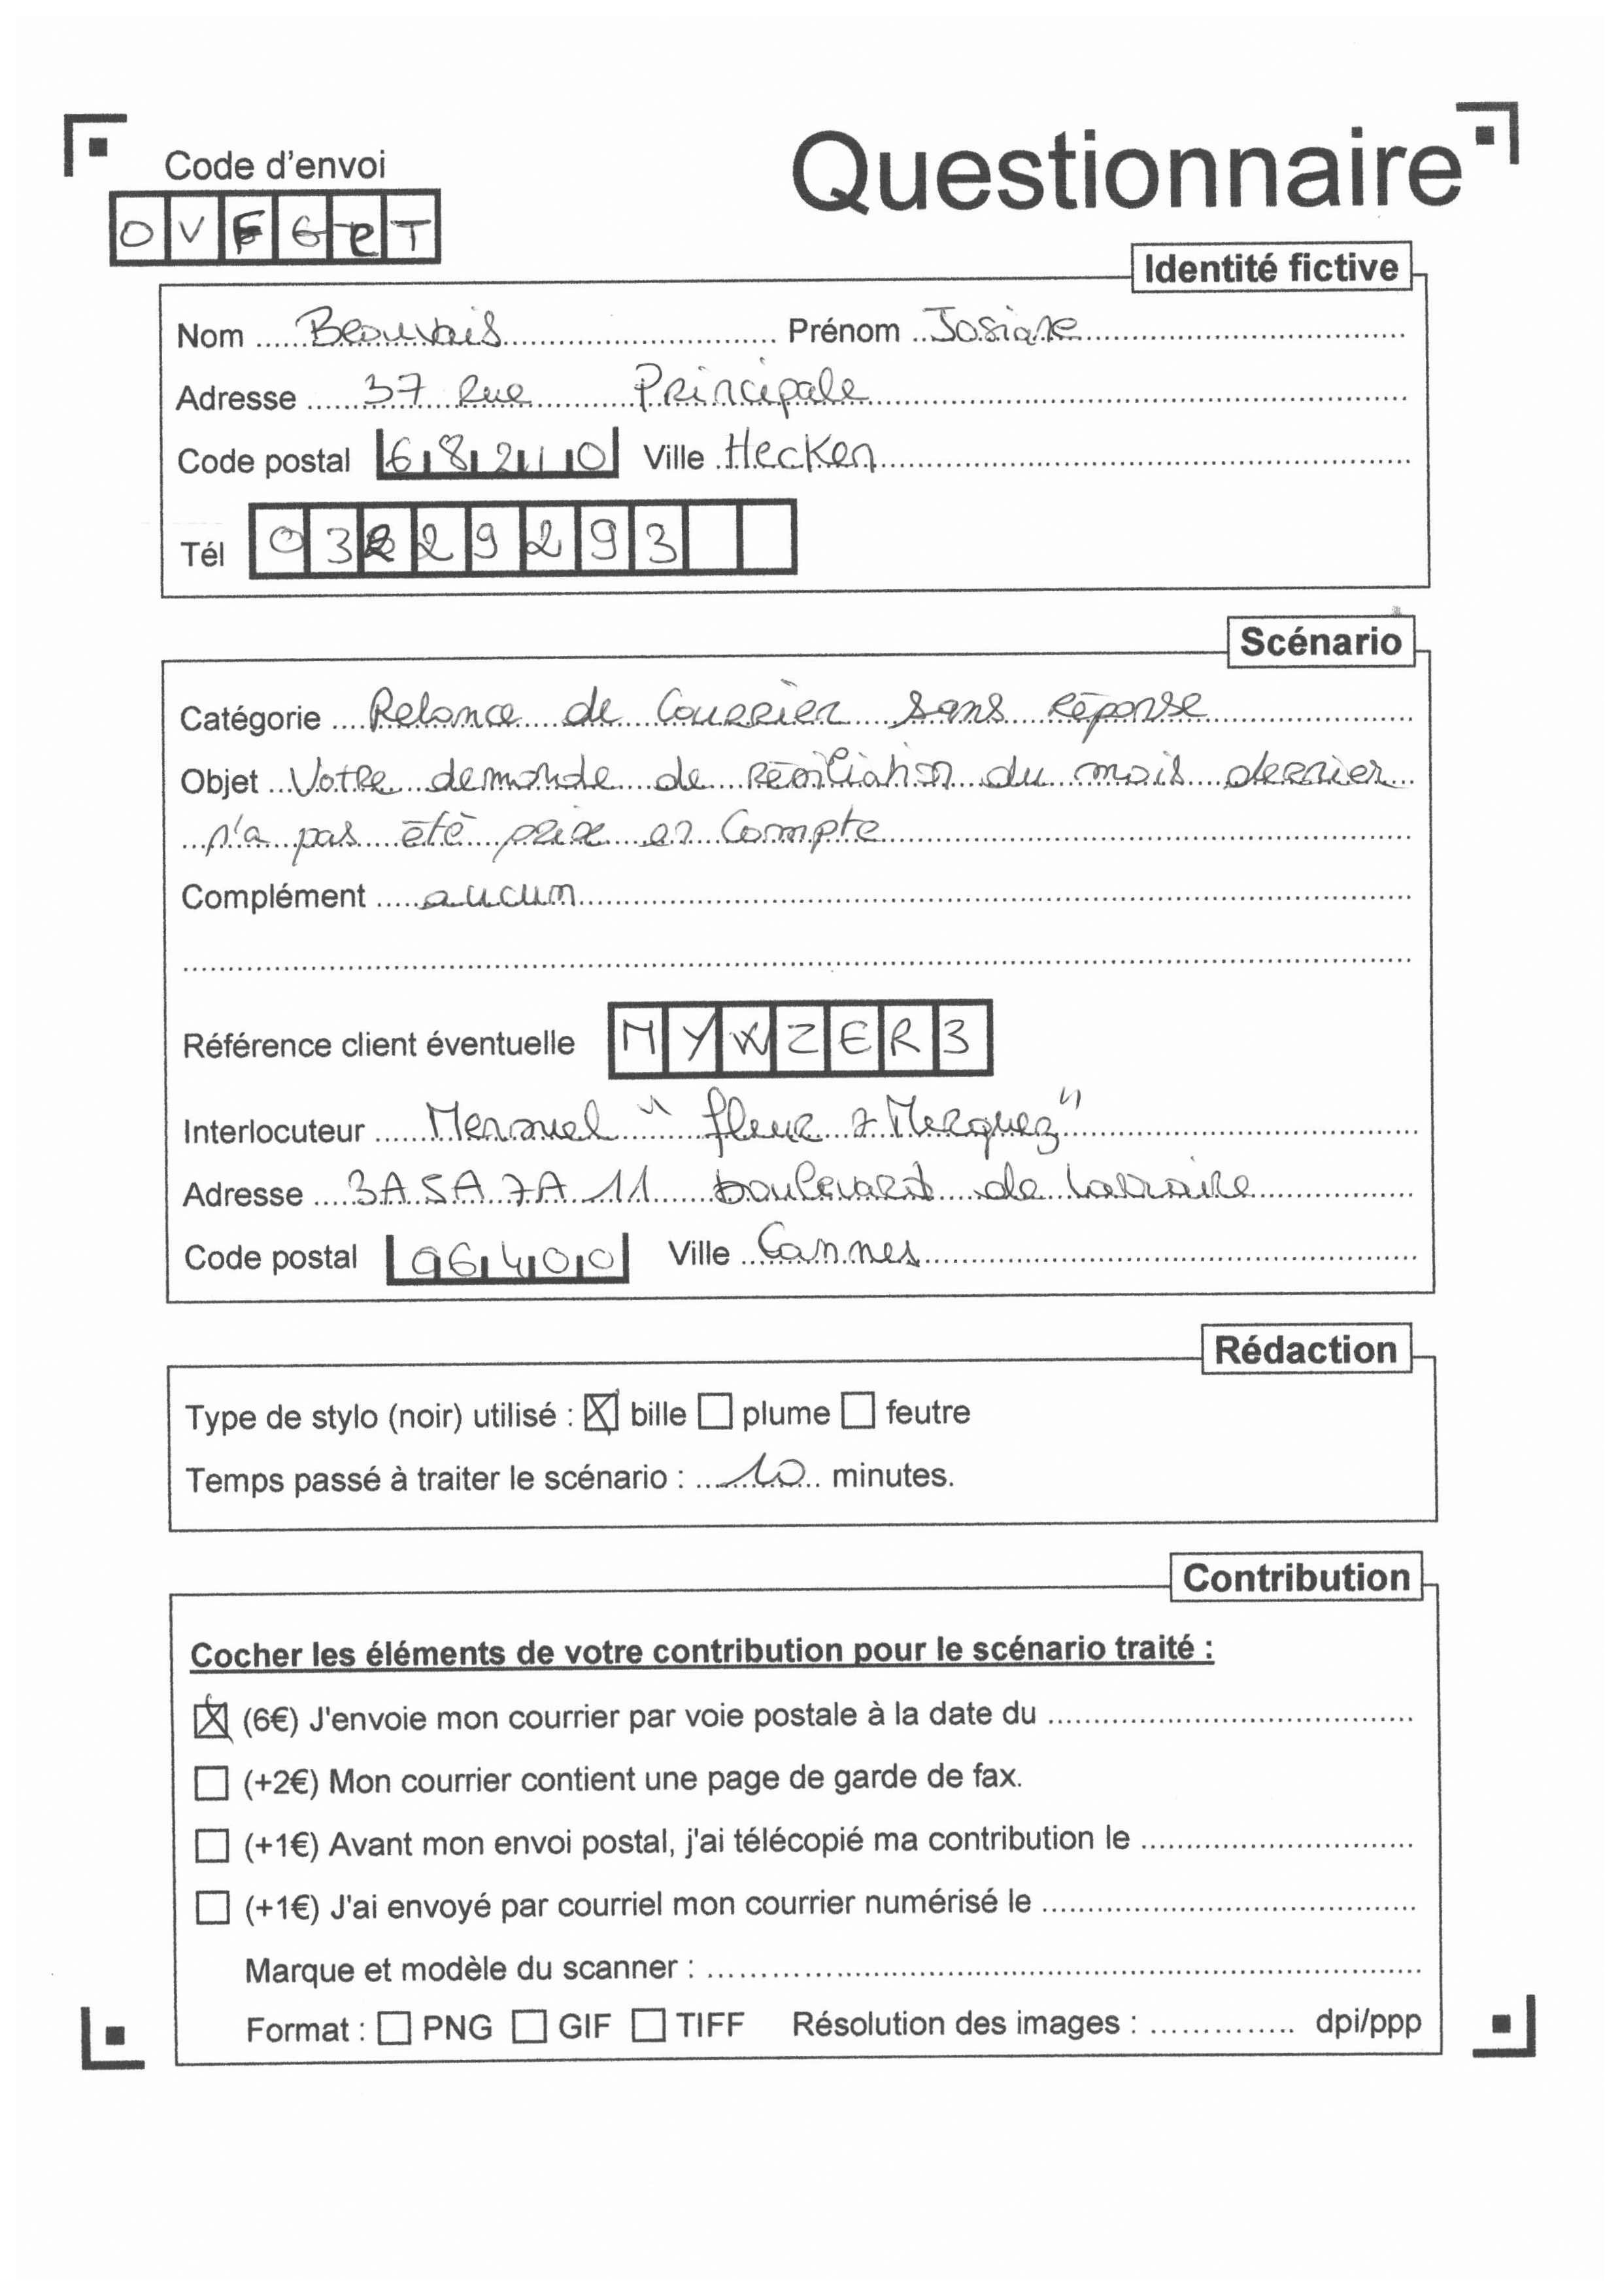 Code d'envoi
Questionnaire
O V F G R T
Identité fictive
Nom Beauvais Prénom Josiane
Adresse 37 Rue Principale
Code postal 68210 Ville Hecken
Tél 03 29293
Scénario
Catégorie Relance de Courrier sans réponse
Objet Votre demande de résiliation du mois dernier
n'a pas été prise en Compte
Complément aucun
Référence client éventuelle MYWZER3
Interlocuteur Mensuel " fleur & "
Adresse ZA 11 boulevard de
Code postal 06400 Ville Cannes
Rédaction
Type de stylo (noir) utilisé : ☒ bille ☐ plume ☐ feutre
Temps passé à traiter le scénario : 10 minutes.
Contribution
Cocher les éléments de votre contribution pour le scénario traité :
☒ (6€) J'envoie mon courrier par voie postale à la date du
☐ (+2€) Mon courrier contient une page de garde de fax.
☐ (+1€) Avant mon envoi postal, j'ai télécopié ma contribution le
☐ (+1€) J'ai envoyé par courriel mon courrier numérisé le
Marque et modèle du scanner :
Format : ☐ PNG ☐ GIF ☐ TIFF Résolution des images : dpi/ppp